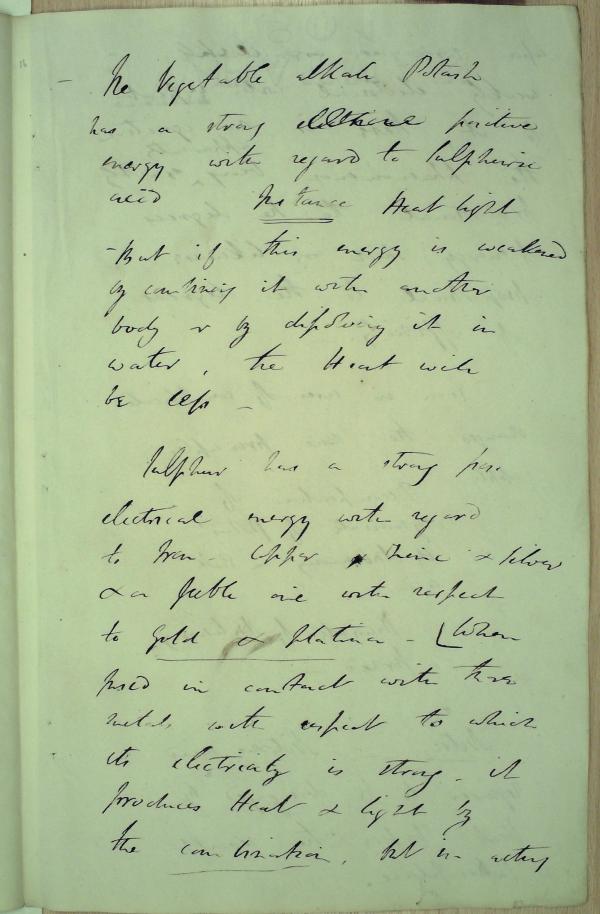 — The Vegetable alkali Potash
has a strong electrical positive
energy with regard to Sulphuric
acid Instance Heat light
- But if this energy is weakened
by combining it with another
body or by dissolving it in
water, the Heat will
be less –
Sulphur has a strong pos:
electrical energy with regard
to Iron - Copper & Zinc & silver
& a feeble one with respect
to Gold & platina - [When
fused in contact with those
metals with respect to which
its electricity is strong, it
produces Heat & light by
the combination, but in acting